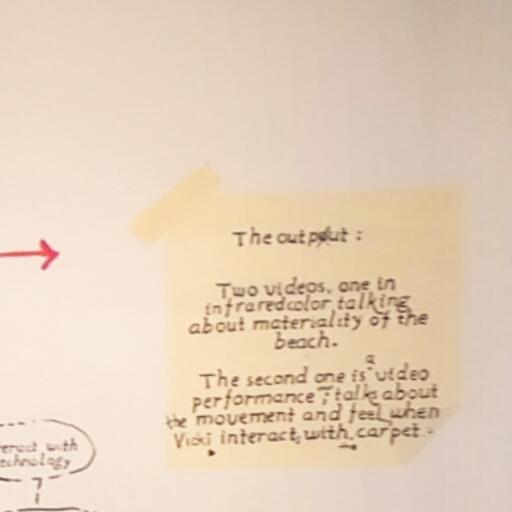 The output :
Two videos, one in
infraredcolor talking
about materiality of the
beach.
The second one is a video
performance, talks about
the movement and feel when
Vicki interact with carpet.
eract with
echnology